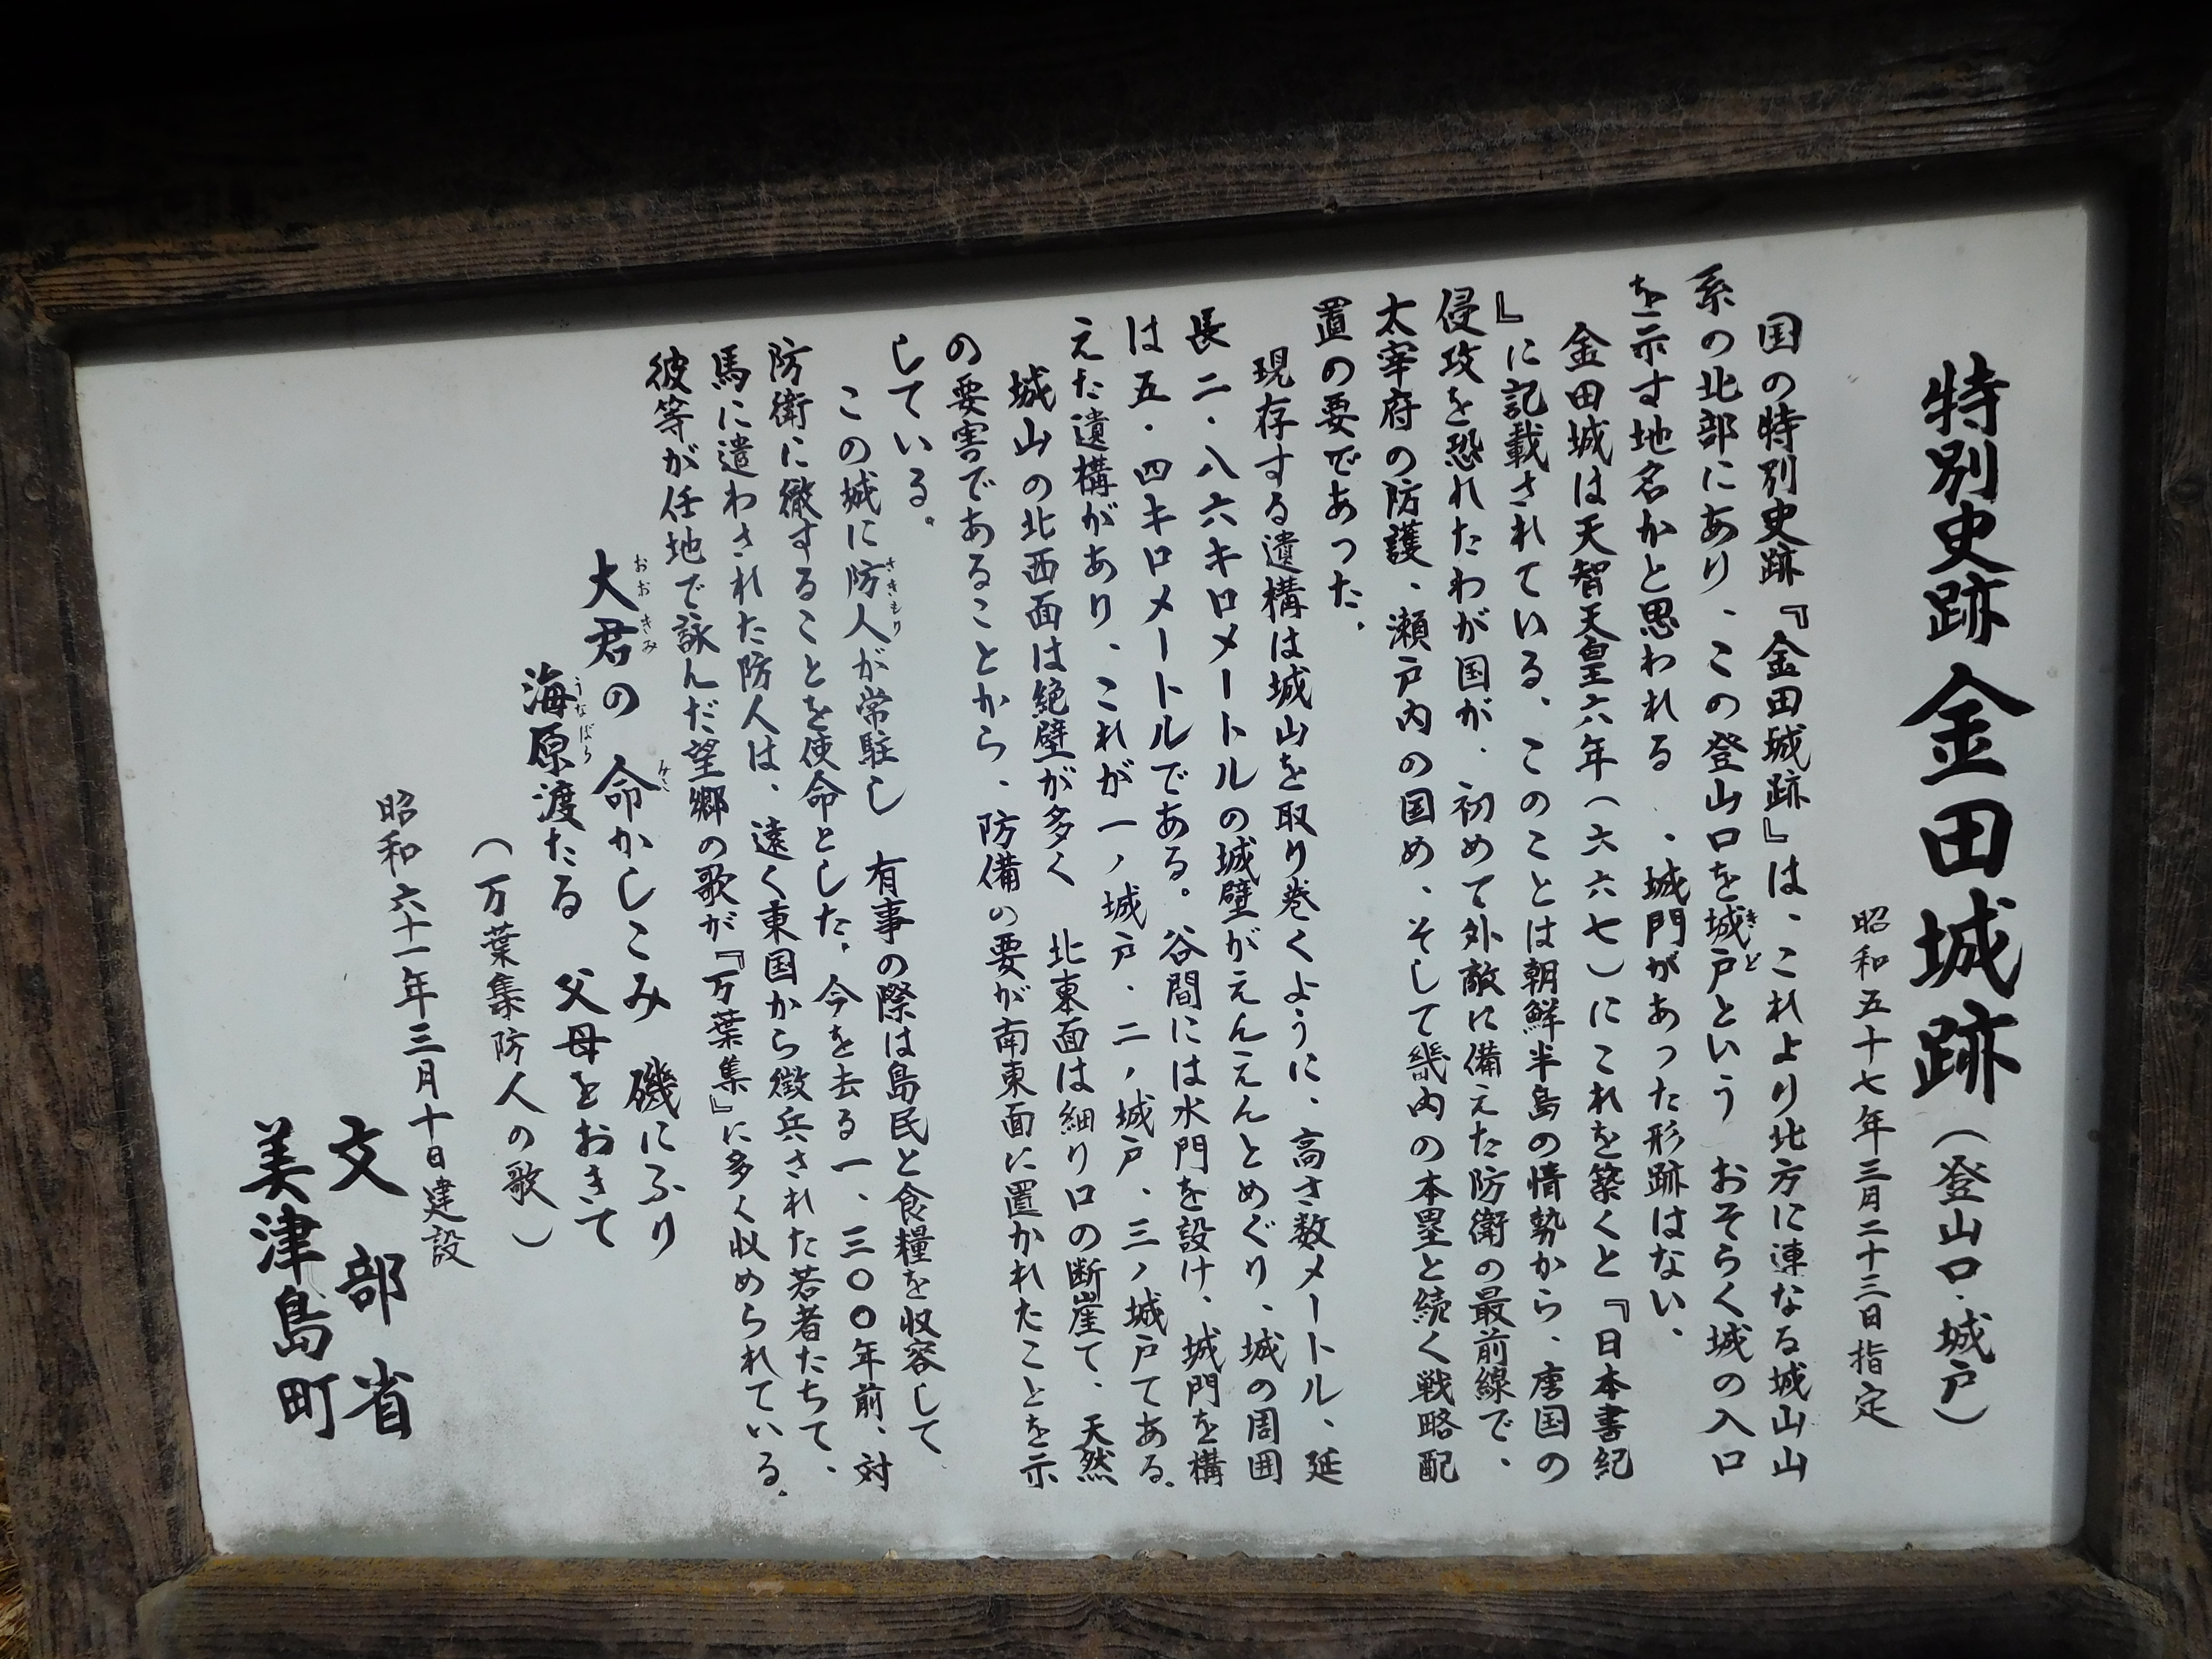 特別史跡 金田城跡（登山口・城戸）
昭和五十七年三月二十三日指定
国の特別史跡『金田城跡』は、これより北方に連なる城山山
系の北部にあり、この登山口を城戸という おそらく城の入口
きど
を示す地名かと思われる 、城門があった形跡はない、
金田城は天智天皇六年（六六七）にこれを築くと『日本書紀
』に記載されている、このことは朝鮮半島の情勢から、唐国の
侵攻を恐れたわが国が、初めて外敵に備えた防衛の最前線で、
太宰府の防護、瀬戸内の国め、そして畿内の本塁と続く戦略配
置の要であった、
現存する遺構は城山を取り巻くように、高さ数メートル、延
長二・八六キロメートルの城壁がえんえんとめぐり、城の周囲
は五・四キロメートルである。谷間には水門を設け、城門を構
えた遺構があり、これが一ノ城戸、二ノ城戸、三ノ城戸てある、
城山の北西面は絶壁が多く 北東面は細り口の断崖て、天然
の要害であることから、防備の要が南東面に置かれたことを示
している。
この城に防人が常駐し 有事の際は島民と食糧を収容して
さきもり
防衛に徹することを使命とした、今を去る一、三〇〇年前、対
馬に遣わされた防人は、遠く東国から徴兵された若者たちて、
彼等が任地で詠んだ望郷の歌が『万葉集』に多く収められている、
大君の 命かしこみ 磯にふり
おおきみ みこ
海原渡たる 父母をおきて
うなばら
（万葉集防人の歌）
昭和六十一年三月十日建設
文部省
美津島町